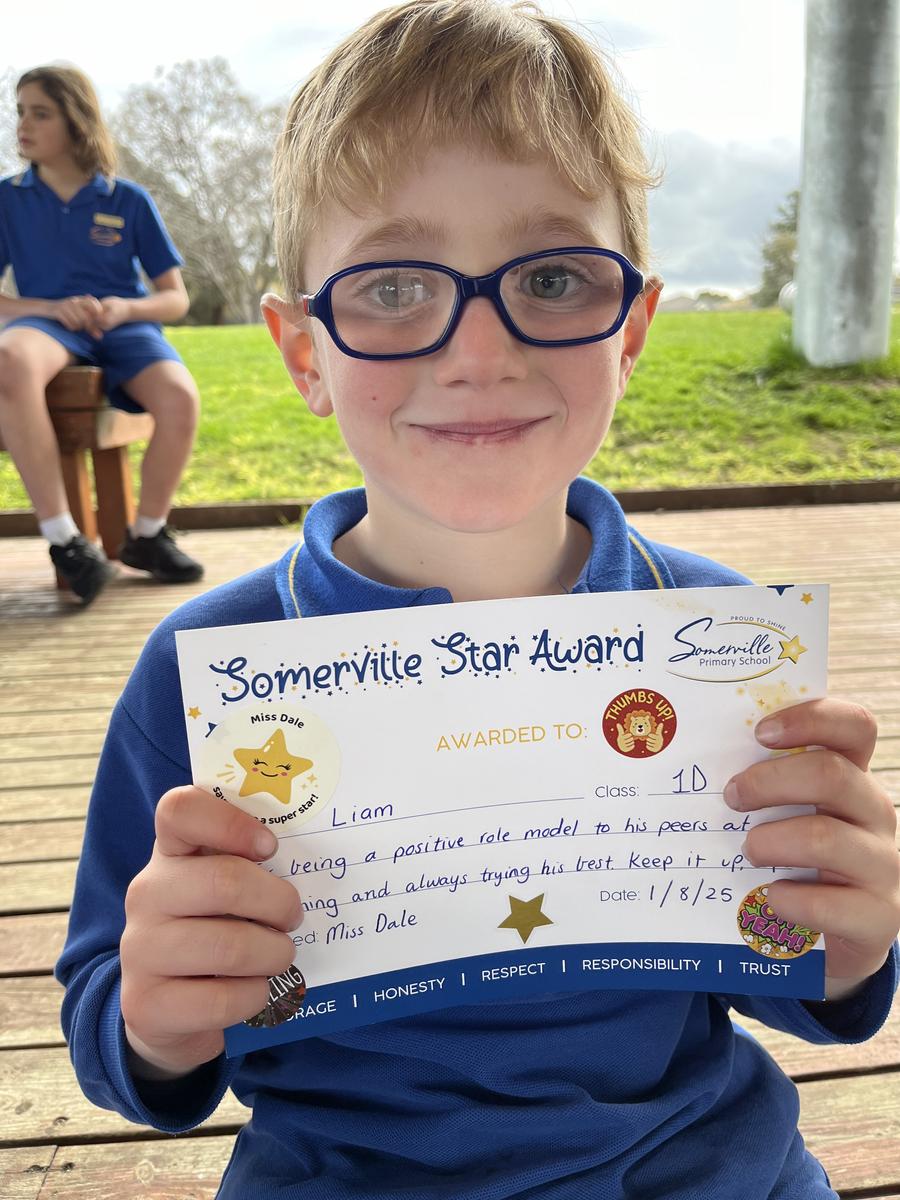 Somerville Star Award
PROUD TO SHINE
Somerville
Primary School
Miss Dale
a super star!
AWARDED TO:
THUMBS UP!
Liam
Class: 1D
being a positive role model to his peers at
and always trying his best. Keep it up,
Miss Dale
Date: 1/8/25
OH YEAH!
HONESTY | RESPECT | RESPONSIBILITY | TRUST